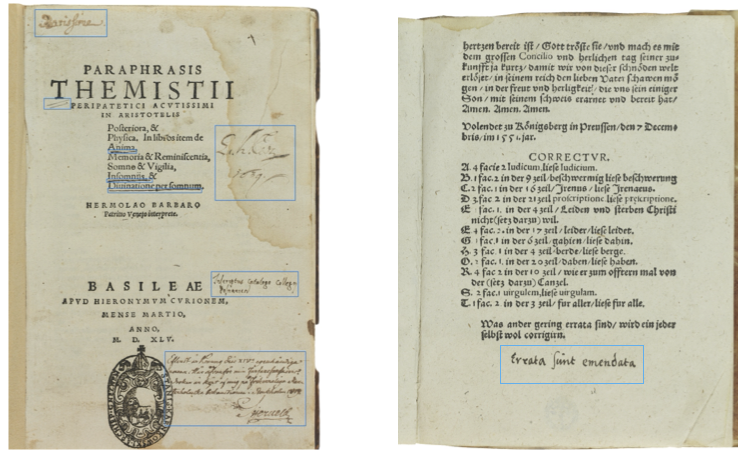 Rarissima
PARAPHRASIS
THEMISTII
PERIPATETICI ACVTISSIMI
IN ARISTOTELIS
Posteriora, &
Physica. In libros item de
Anima,
Memoria & Reminiscentia,
Somno & Vigilia,
Insomnijs, &
Diuinatione per somnum,
HERMOLAO BARBARO
Patritio Veneto interprete.
BASILEAE
APVD HIERONYMVM CVRIONEM,
MENSE MARTIO,
ANNO,
M. D. XLV.
hertzen bereit ist / Gott tröste sie / vnd mach es mit
dem grossen Concilio vnd herlichen tag seiner zu-
kunfft ja kurtz / damit wir von dieser schnöden welt
erlöset / in seinem reich den lieben Vater schawen mö
gen / in der freut vnd herligkeit / die vns sein einiger
Son / mit seinem schweis erarnet vnd bereit hat /
Amen. Amen. Amen.
Volendet zu Königsberg in Preussen / den 7 Decem-
bris / im 1551. jar.
CORRECTVR.
A. 4 facie 2 ludicum, liese iudicium.
B. 1 fac. 2 in der 9 zeil / beschwermig liese beschwerung
C. 2 fac. 1 in der 16 zeil / Irenus / liese Irenaeus.
D 3 fac. 2 in der 21 zeil proscriptione liese praescriptione.
E fac. 1. in der 4 zeil / Leiden vnd sterben Christi
nicht (setz darzu) wil.
E 4 fac. 2. in der 17 zeil / leider / liese leidet.
G 1 fac. 1 in der 6 zeil / gahien / liese dahin.
H. 3 fac. 1 in der 4 zeil / berde / liese berge.
O. 2 fac. 1. in der 20 zeil / daben / liese haben.
R. 4 fac 2 in der 10 zeil / wie er zum offtern mal von
der (setz darzu) Canzel.
S. 2 fac. 1 uirgulem, liese uirgulam.
T. 1 fac. 2. in der 3 zeil / fur aller / liese fur alle.
Was ander gering errata sind / wird ein jeder
selbst wol corrigirn.
Errata sunt emendata